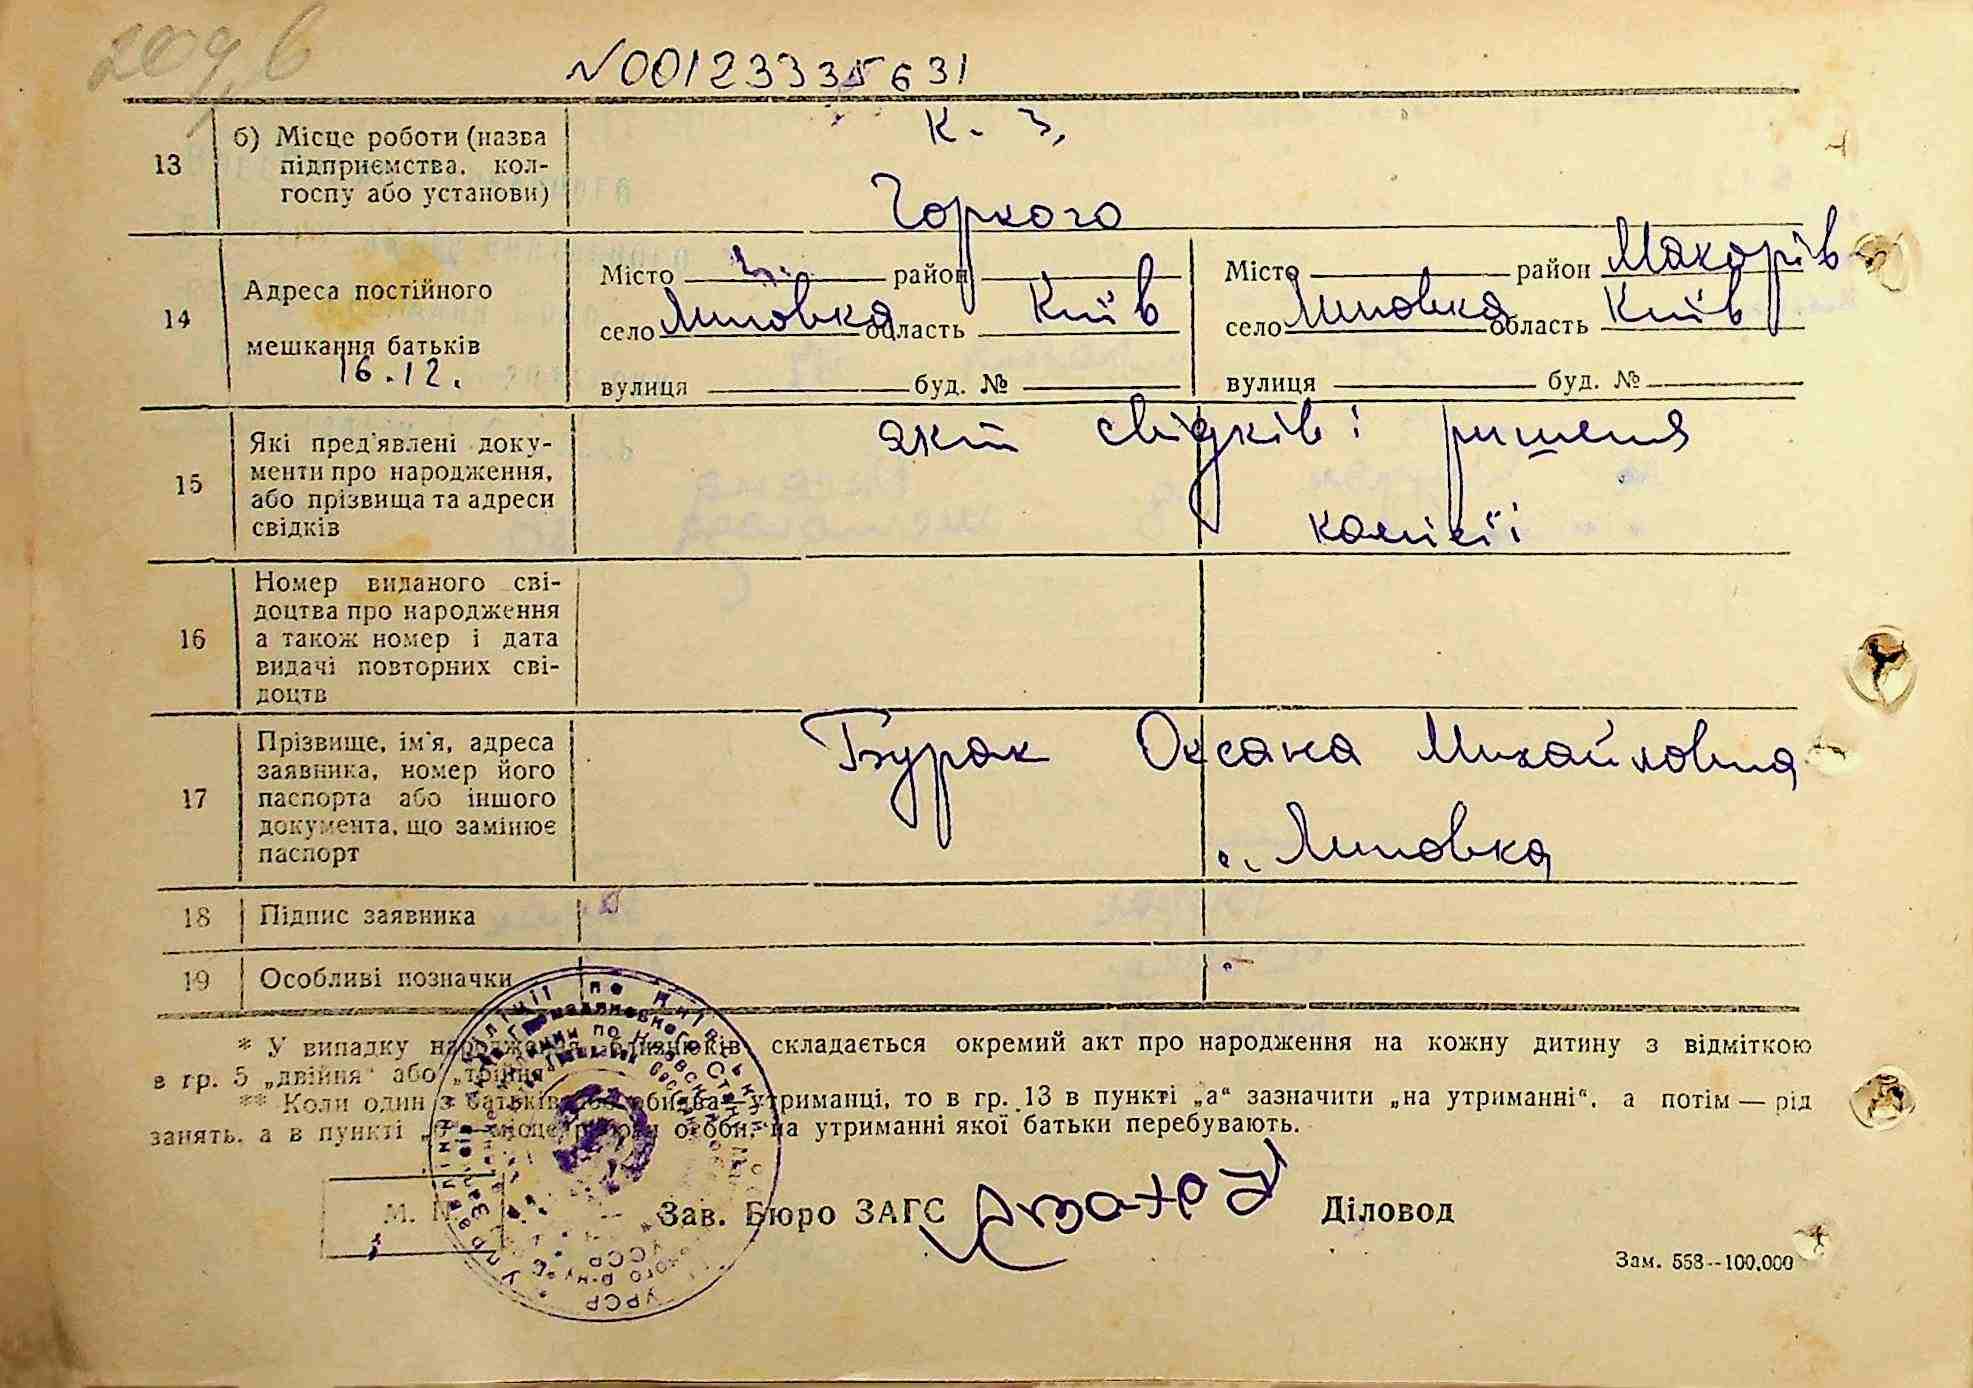 209, в
N00123335631
13
б) Місце роботи (назва
підприємства, кол-
госпу або установи)
к. з,
Горкого
14
Адреса постійного
мешкання батьків
16.12.
Місто район
село Липовка область Київ
вулиця буд. №
Місто район Макорів
село Липовка область Київ
вулиця буд. №
15
Які пред'явлені доку-
менти про народження,
або прізвища та адреси
свідків
акт свідків і ришеня
комісії
16
Номер виданого сві-
доцтва про народження
а також номер і дата
видачі повторних сві-
доцтв
17
Прізвище, ім'я, адреса
заявника, номер його
паспорта або іншого
документа, що замінює
паспорт
Бурак Оксана Михайловна
с. Липовка
18
Підпис заявника
19
Особливі позначки
* У випадку народження близнюків, складається окремий акт про народження на кожну дитину з відміткою
в гр. 5 „двійня“ або „трійня“
** Коли один з батьків або обидва утриманці, то в гр. 13 в пункті „а“ зазначити „на утриманні“, а потім — рід
занять, а в пункті „б“ місце роботи особи, на утриманні якої батьки перебувають.
М. П.
Зав. Бюро ЗАГС
Діловод
Зам. 558--100.000